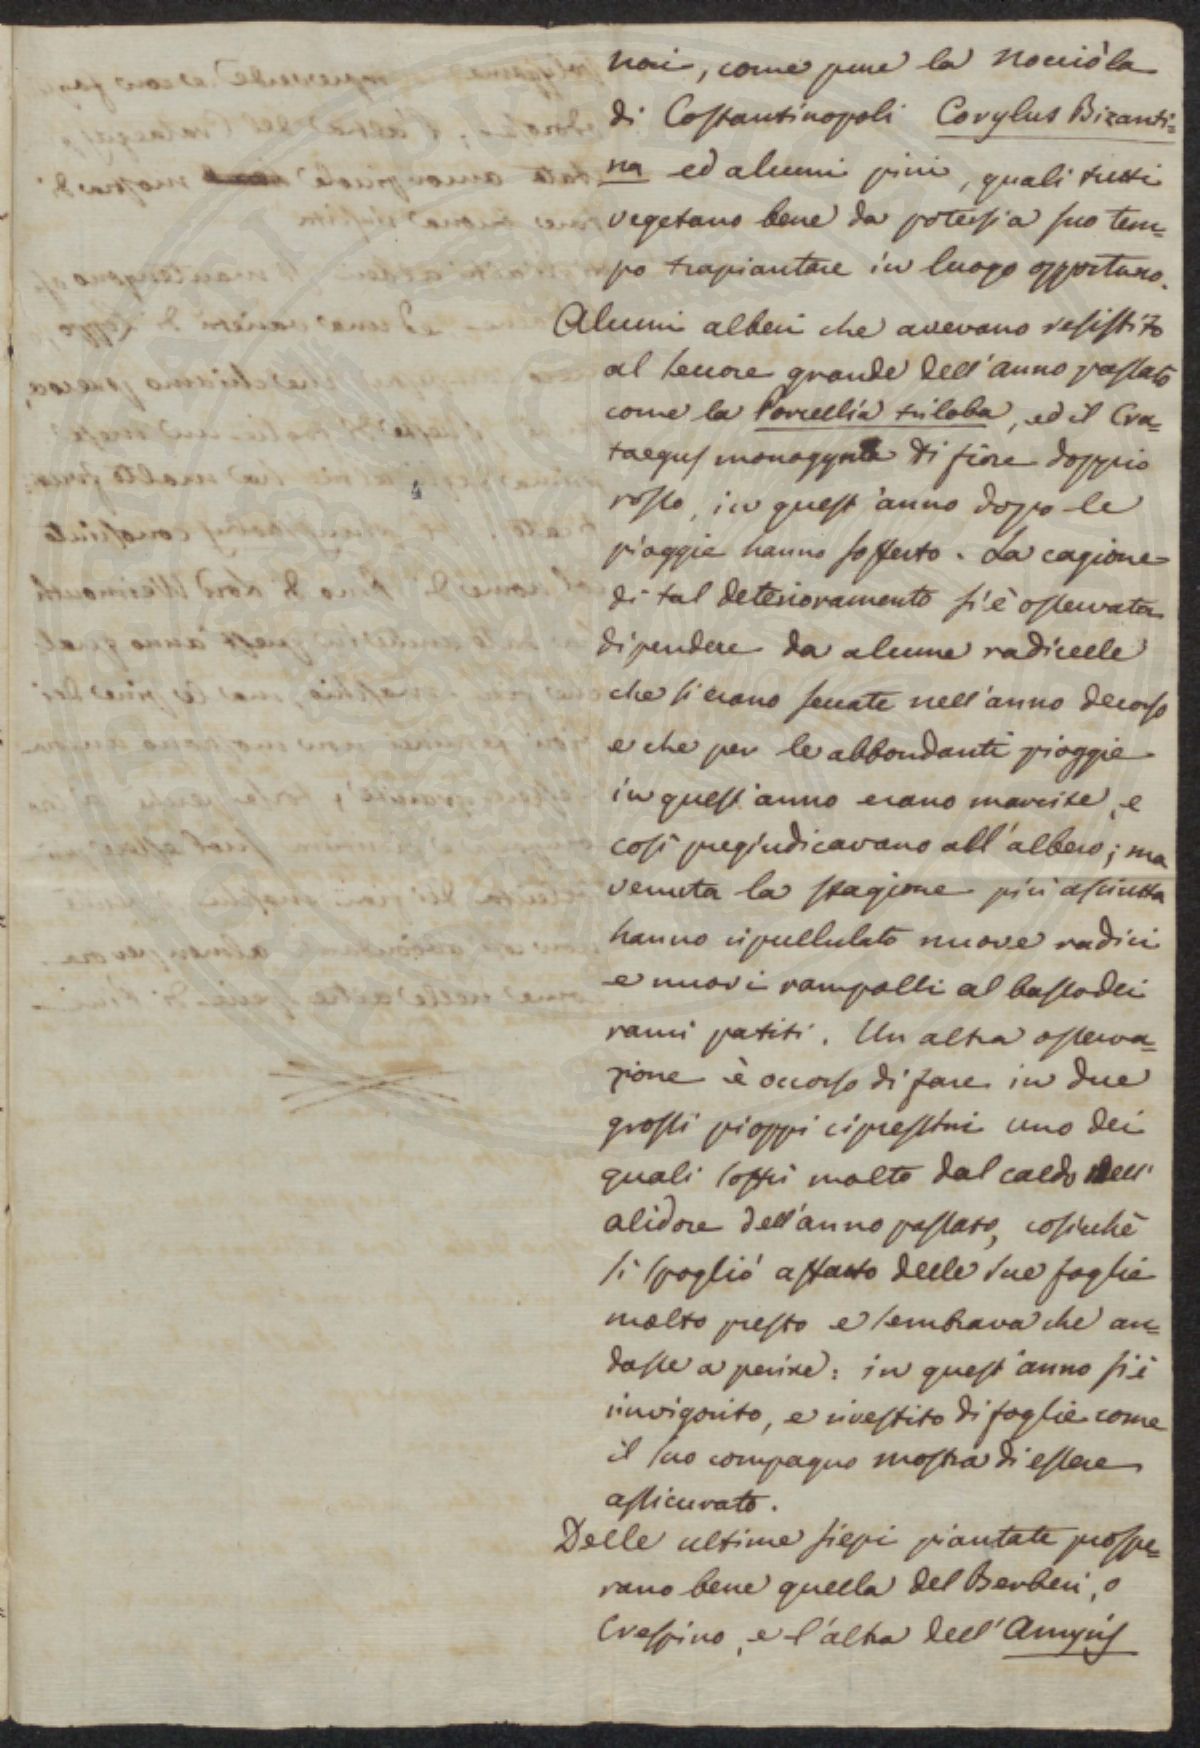 noci, come pure la Nocciòla
di Costantinopoli Corylus Bizanti=
na ed alcuni pini, quali tutti
vegetano bene da potersi a suo tem=
po trapiantare in luogo opportuno.
Alcuni alberi che avevano resistito
al seccore grande dell'anno passato
come la Porcellia triloba, ed il Cra=
taegus monogyna di fiore doppio
rosso, in quest'anno dopo le
pioggie hanno sofferto. La cagione
di tal deterioramento si è osservata
dipendere da alcune radicelle
che si erano seccate nell'anno decorso
e che per le abbondanti pioggie
in quest'anno erano marcite, e
così pregiudicavano all'albero; ma
venuta la stagione più asciutta
hanno ripullulato nuove radici
e nuovi rampolli al basso dei
rami patiti. Un altra osserva=
zione è occorso di fare in due
grossi pioppi cipressini uno dei
quali soffrì molto dal caldo dell'
alidore dell'anno passato, cosicchè
si spogliò affatto delle sue foglie
molto presto e sembrava che an=
dasse a perire: in quest'anno si è
rinvigorito, e rivestito di foglie come
il suo compagno mostra di essere
assicurato.
Delle ultime siepi piantate prospe=
rano bene quella del Berberi, o
Crespino, e l'altra dell'